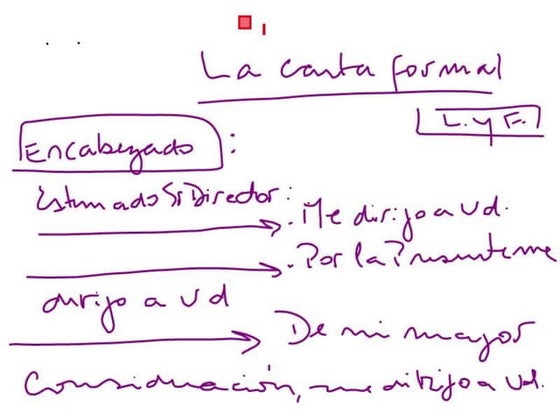 La carta formal
L. y F.
Encabezado :
Estimado Sr Director:
. Me dirijo a Vd.
. Por la Presente me
dirijo a Vd
De mi mayor
Consideración, me dirijo a Vd.